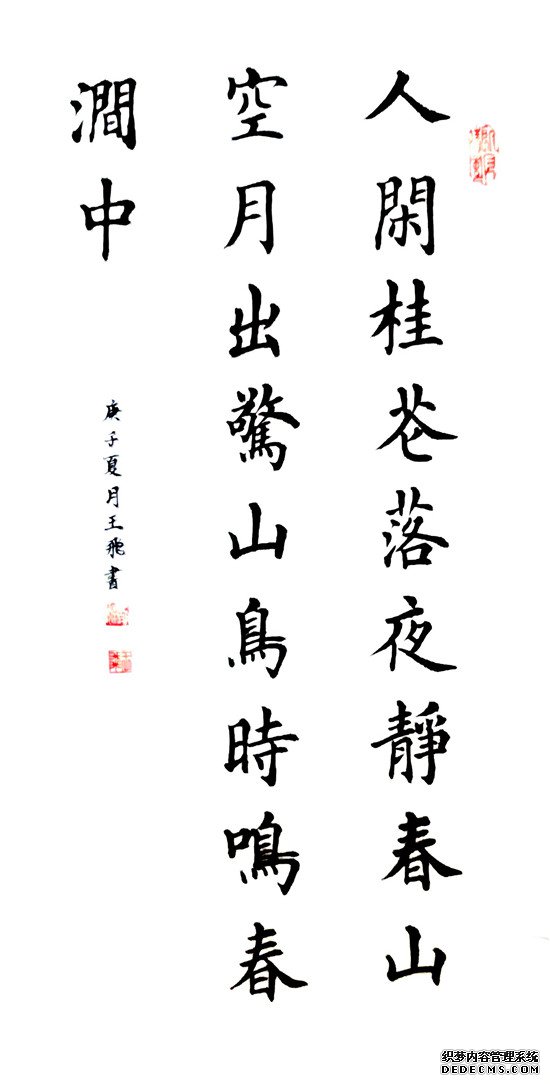 人閑桂花落夜靜春山
空月出驚山鳥時鳴春
澗中
庚子夏月王飛書
织梦内容管理系统
DEDECMS.COM